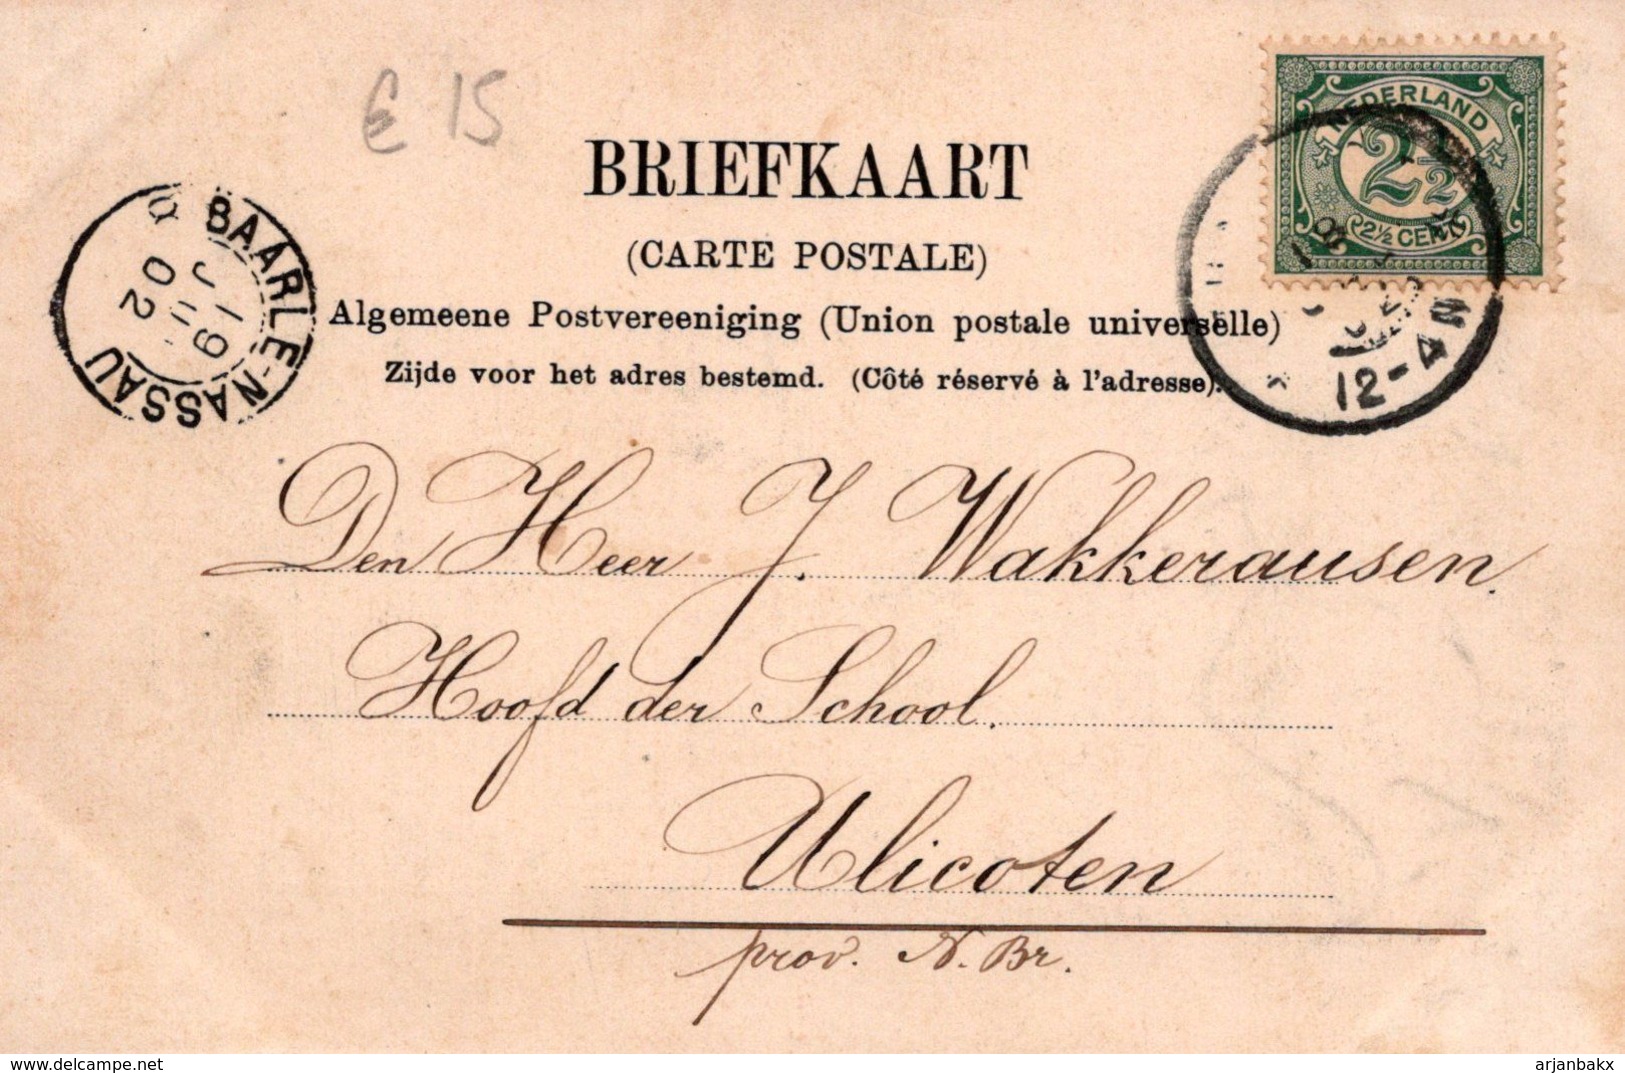 € 15
NEDERLAND
2½
2½ CENT
BRIEFKAART
(CARTE POSTALE)
Algemeene Postvereeniging (Union postale universelle)
Zijde voor het adres bestemd. (Côté réservé à l'adresse).
BAARLE-NASSAU
19 JUL 02
12-4N
Den Heer J. Wakkerausen.
Hoofd der School.
Ulicoten
prov. N. Br.
delcampe.net
arjanbakx